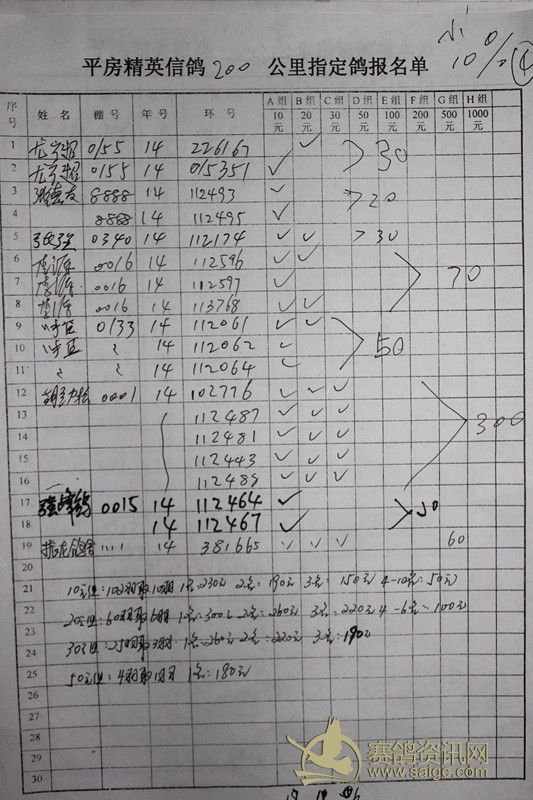 小 10%④
平房精英信鸽 200 公里指定鸽报名单
序号 姓名 棚号 年号 环号 A组10元 B组20元 C组30元 D组50元 E组100元 F组200元 G组500元 H组1000元
1 0155 14 226167 ✓
2 0155 14 015351 ✓ >30
3 8888 14 112493 ✓
4 8888 14 112495 ✓ >20
5 0340 14 112174 ✓ ✓ >30
6 0016 14 112596 ✓ ✓
7 0016 14 112597 ✓ 70
8 0016 14 113768 ✓ ✓
9 0133 14 112061 ✓ ✓
10 〃 14 112062 ✓ 50
11 〃 〃 14 112064 ✓
12 0001 14 102776 ✓ ✓ ✓
13 112487 ✓ ✓ ✓
14 112481 ✓ ✓ ✓ 300
15 112443 ✓ ✓ ✓
16 112489 ✓ ✓ ✓
17 0015 14 112464 ✓
18 14 112467 ✓
19 1111 14 381665 ✓ ✓ ✓ 60
20
21 10元组:102羽取10羽 1名:230元 2名:190元 3名:150元 4-10名:50元
22 20元组:60羽取6羽 1名:300元 2名:260元 3名:220元 4-6名:100元
23
24 30元组:25羽取3羽 1名:260元 2名:220元 3名:190元
25 50元组:4羽取1羽 1名:180元
26
27
28
29
30
赛鸽资讯网
www.saige.com